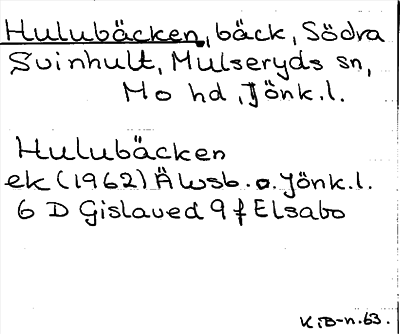 Hulubäcken, bäck, Södra
Svinhult, Mulseryds sn,
Mo hd, Jönk.l.
Hulubäcken
ek (1962) Älvsb. o. Jönk.l.
6 D Gislaved 9 f Elsabo
K.B-n.63.